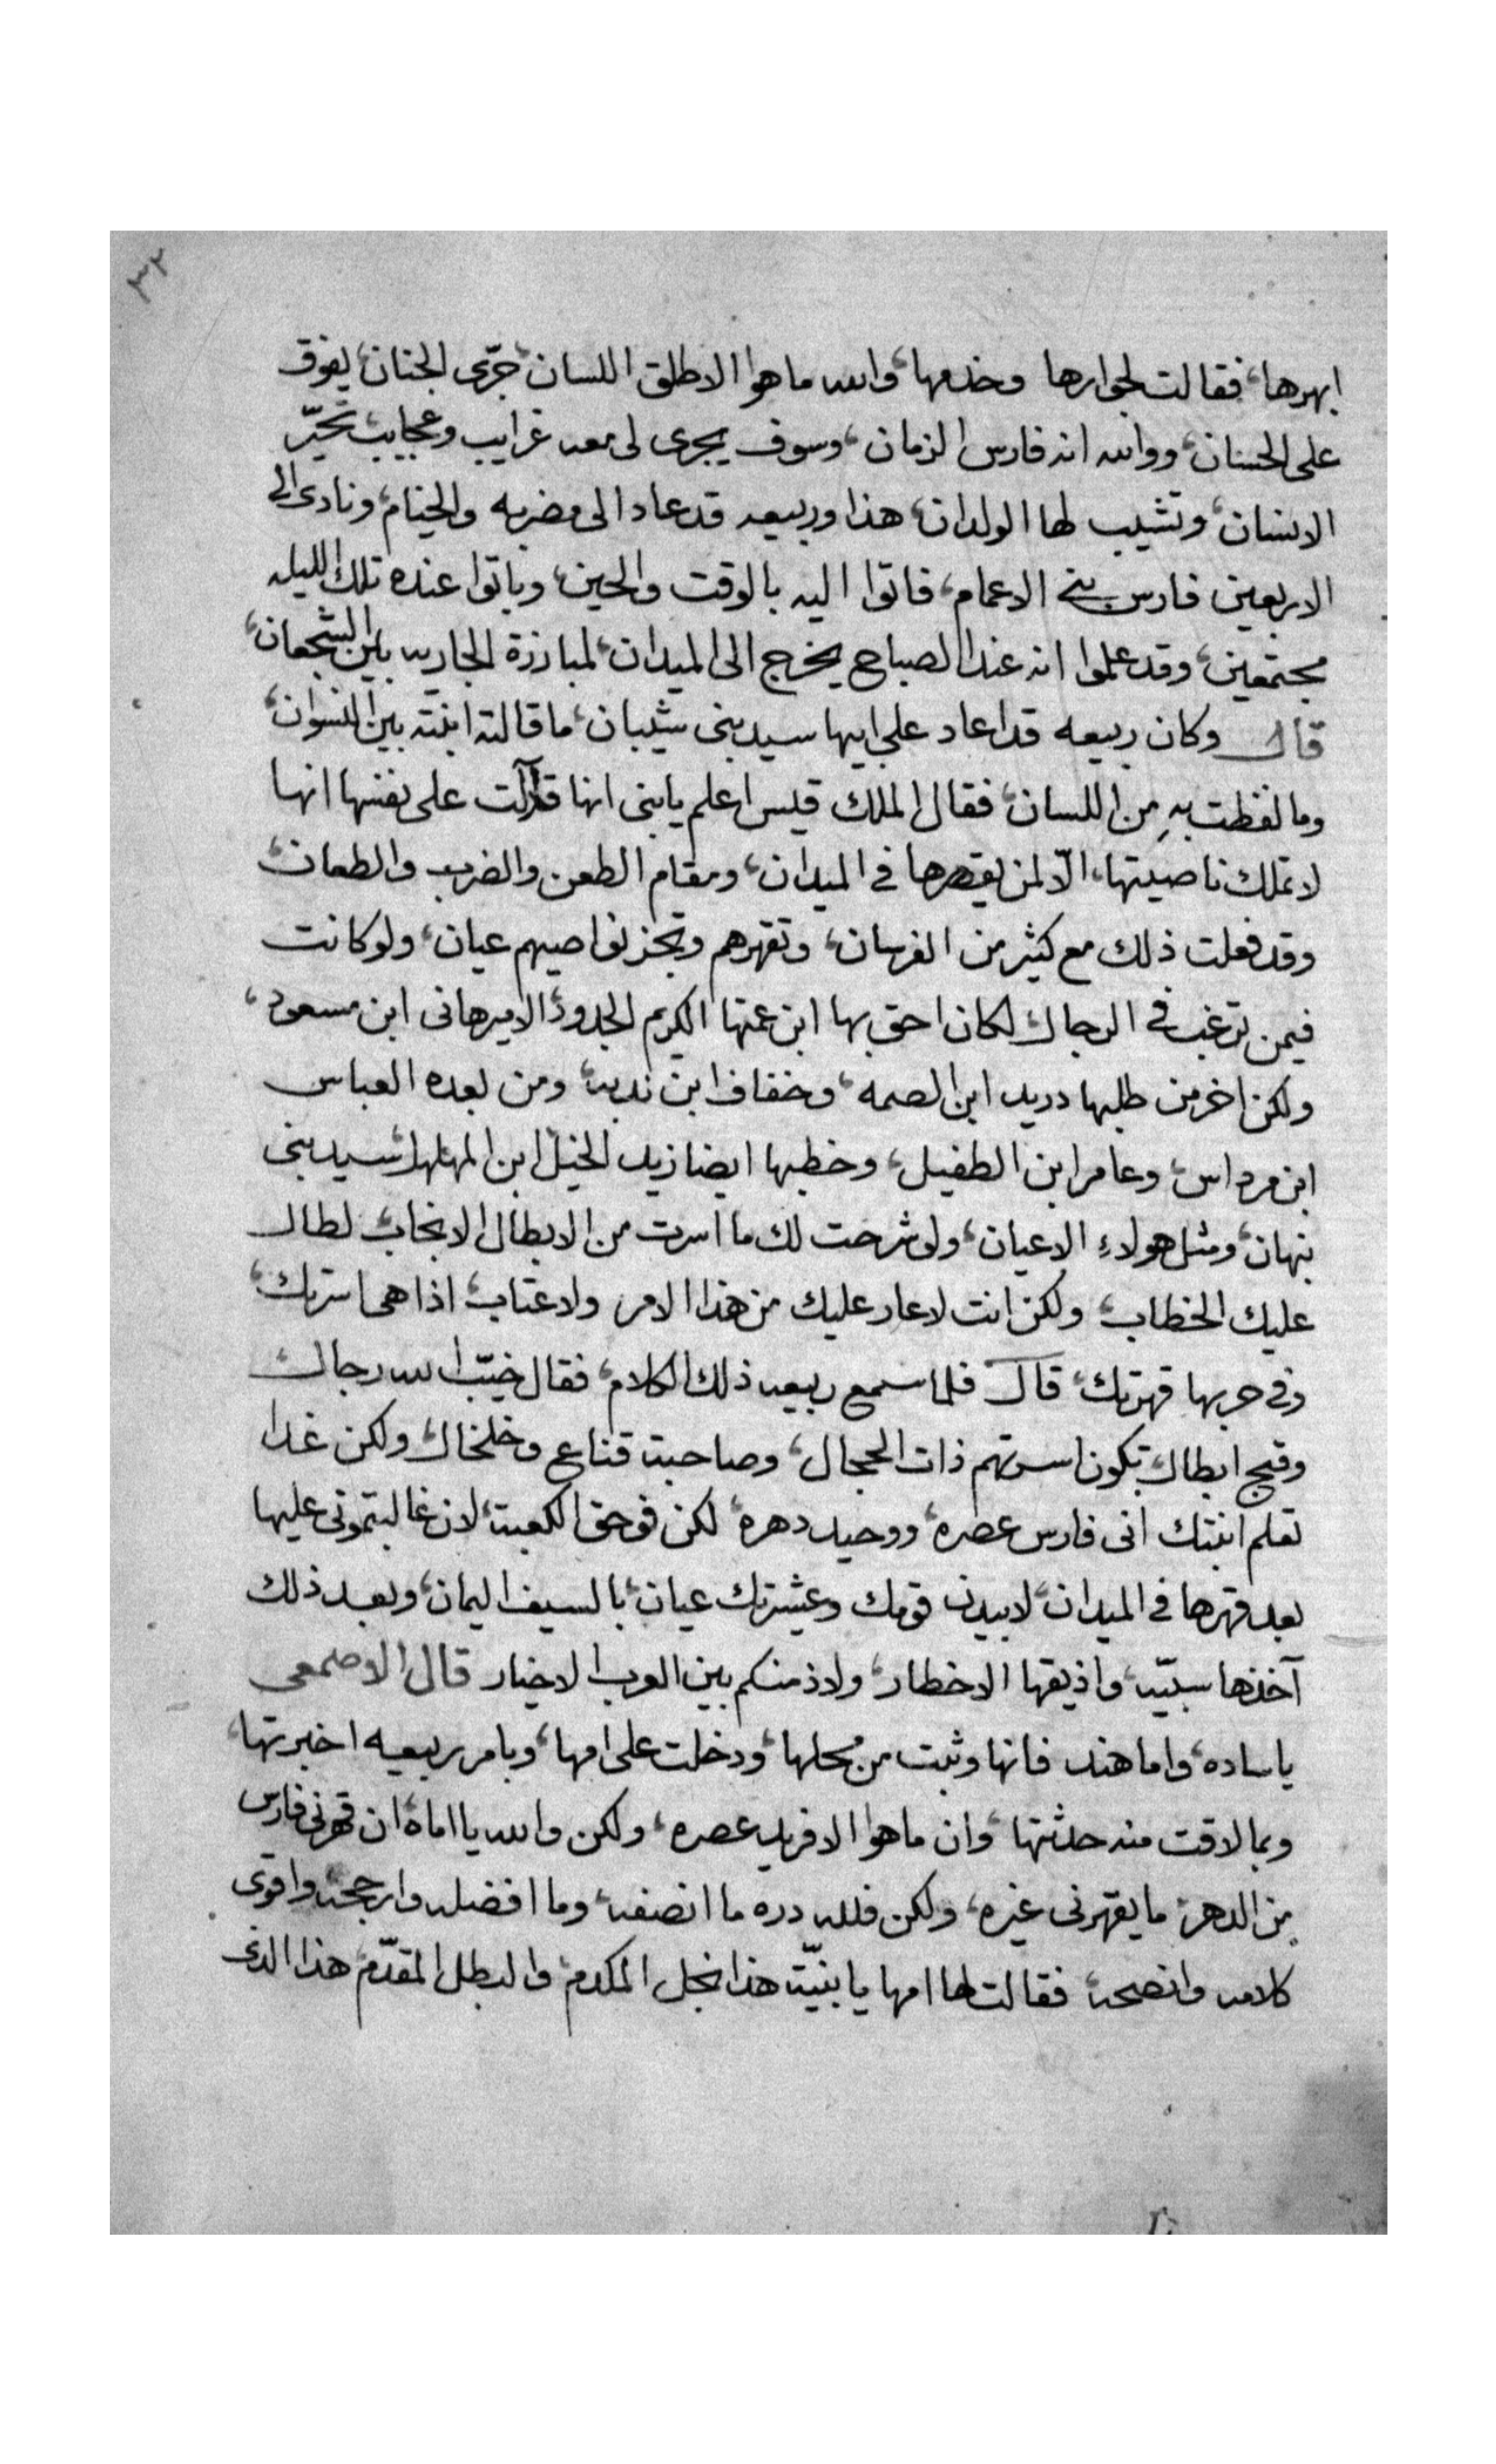 ٣٢
ابهرها، فقالت لجوارها وخدمها، والله ما هوا الا طلق اللسان، جرّى الجنان، يفوق
على الحسان، ووالله انه فارس الزمان، وسوف يجرى لى معه غرايب وعجايب، تحيّر
الانسان، وتشيب لها الولدان، هذا وربيعه قد عاد الى مضربه والخيام، ونادى الى
الاربعين فارس بنى الاعمام، فاتوا اليه بالوقت والحين، وباتوا عنده تلك الليله
مجتمعين، وقد علموا انه عند الصباح يخرج الى الميدان، لمبارزة الجاريه بين الشجعان،
قال وكان ربيعه قد اعاد على ابيها سيد بنى شيبان، ما قالته ابنته بين النسوان،
وما لفظت بهِ من اللسان، فقال الملك قيس اعلم يابنى انها قد آلت على نفسها انها
لا تملك ناصيتها، الّا لمن يقهرها فى الميدان، ومقام الطعن والضرب والطعان،
وقد فعلت ذلك مع كثير من الفرسان، وتقهرهم وتجز نواصيهم عيان، ولو كانت
فيمن ترغب فى الرجال، لكان احق بها ابن عمتها الكريم الجدود، الامير هانى ابن مسعود،
ولكن اخر من طلبها دريد ابن الصمه، وخفاف ابن ندبه، ومن بعده العباس
ابن مرداس، وعامر ابن الطفيل، وخطبها ايضا زيد الخيل ابن المهلهل، سيد بنى
نبهان، ومثل هولاءِ الاعيان، ولى شرحت لك ما اسرت من الابطال الانجاب، لطال
عليك الخطاب، ولكن انت لا عار عليك من هذا الامر ولا عتاب، اذا هى اسرتك،
وفى حربها قهرتك، قال فلما سمع ربيعه ذلك الكلام، فقال خيّب الله رجال،
وقبح ابطال، تكون اسرتهم ذات الحجال، وصاحبة قناع وخلخال، ولكن غدا
تعلم ابنتك انى فارس عصره، ووحيد دهره، لكن فوحق الكعبة، لان غالبتمونى عليها
بعد قهرها فى الميدان، لابيدن قومك وعشيرتك عيان، بالسيف اليمان، وبعد ذلك
آخذها سبيّه، واذيقها الاخطار، ولا ذمنكم بين العرب الاخيار قال الاصمعى
ياساده، واما هند فانها وثبت من محلها، ودخلت على امها، وبامر ربيعه اخبرتها،
وبما لاقت منه حدثتها، وان ما هوا الا فريد عصره، ولكن والله يا اماه، ان قهرنى فارس
من الدهر، ما يقهرنى غيره، ولكن فلله دره ما انصفه، وما افضله وارجحه، واقوى
كلامه وانصحه، فقالت لها امها يا بنيّة هذا نجل المكدم، والبطل المقدّم، هذا الذى